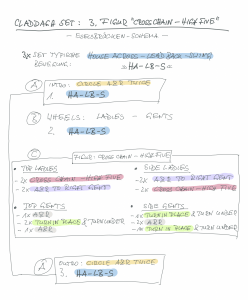 CLADDAGH SET: 3. FIGUR "CROSS CHAIN - HIGH FIVE"
- ESELSBRÜCKEN - SCHEMA -
3x SET TYPISCHE HOUSE ACROSS - LEAD BACK - SWING
= HA-LB-S =
A INTRO: CIRCLE ABR TWICE
1. HA-LB-S
B WHEELS: LADIES - GENTS
2. HA-LB-S
C FIGUR: CROSS CHAIN - HIGH FIVE
• TOP LADIES
- 2x CROSS CHAIN - HIGH FIVE
- 2x ABR TO RIGHT GENT
• SIDE LADIES
- 2x ABR TO RIGHT GENT
- 2x CROSS CHAIN - HIGH FIVE
• TOP GENTS
- 1x ABR
- 2x TURN IN PLACE & TURN UNDER
- 1x ABR
• SIDE GENTS
- 1x TURN IN PLACE & TURN UNDER
- 2x ABR
- 1x TURN IN PLACE & TURN UNDER
A OUTRO: CIRCLE ABR TWICE
3. HA-LB-S